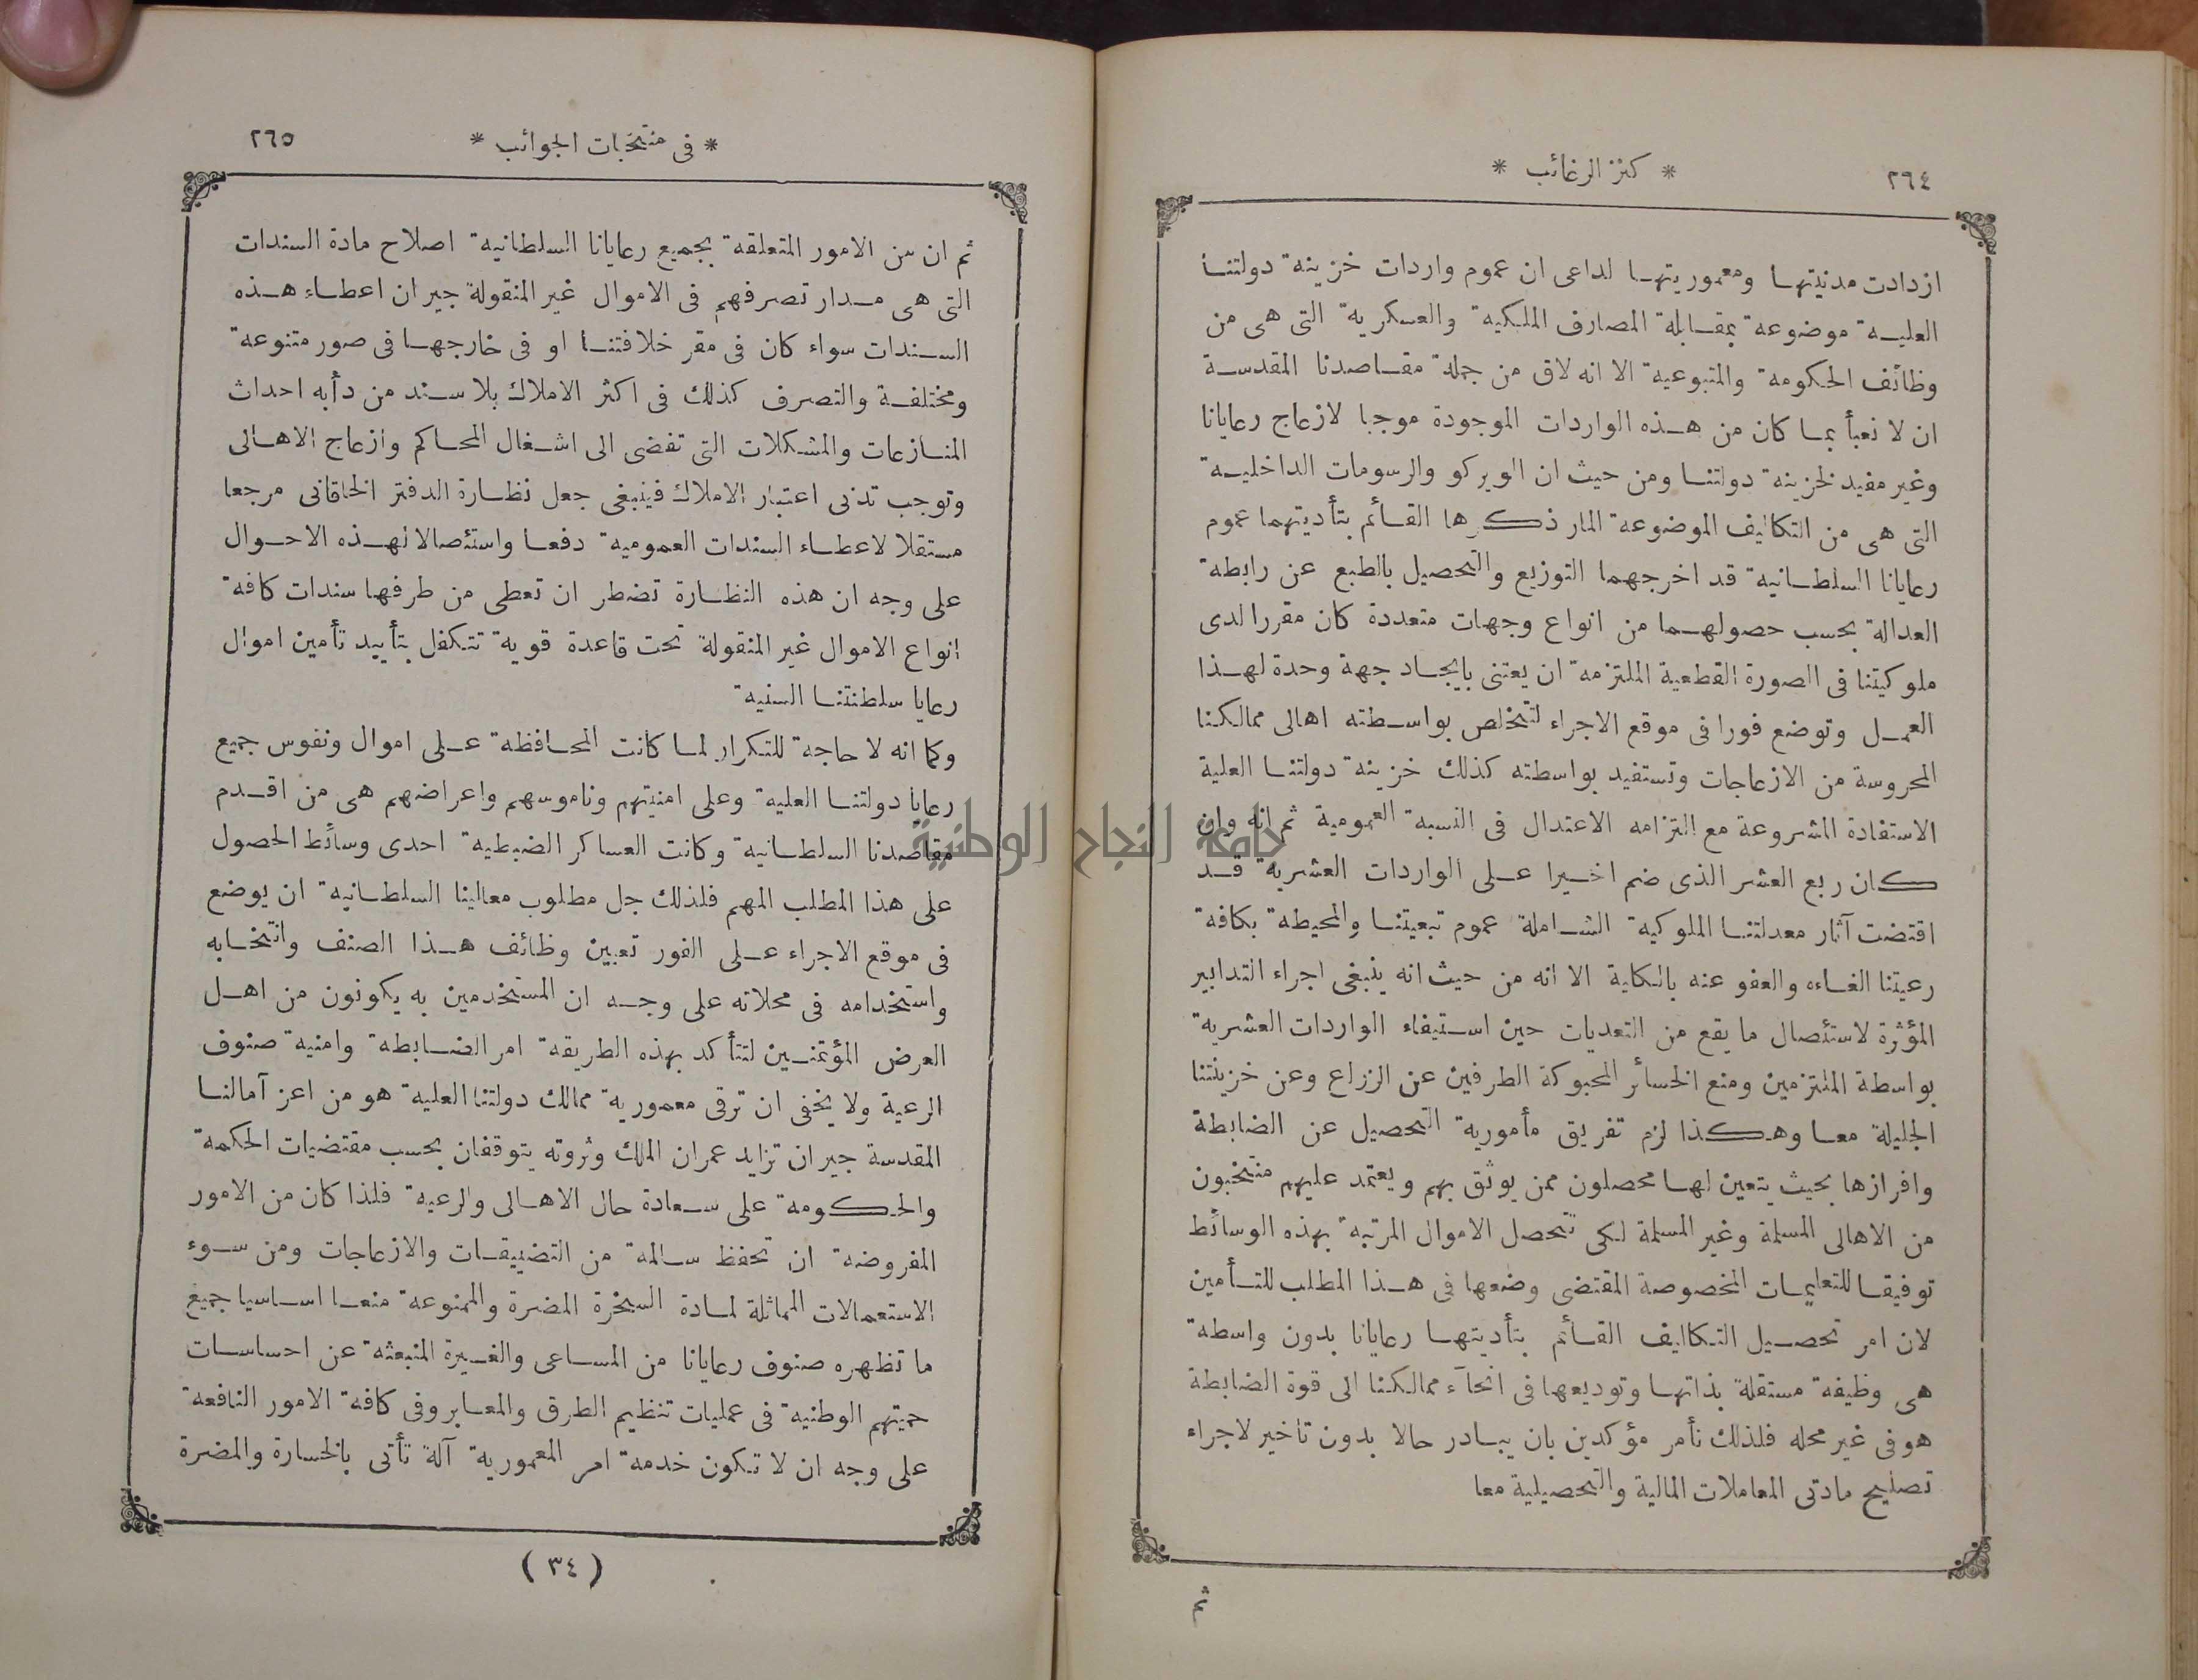 ٢٦٤
* كنز الرغائب *
ازدادت مدنيتها ومعموريتها لداعى ان عموم واردات خزينة دولتنا
العلية موضوعة بمقابلة المصارف الملكية والعسكرية التى هى من
وظائف الحكومة والمتبوعية الا انه لاق من جملة مقاصدنا المقدسة
ان لا نعبأ بما كان من هذه الواردات الموجودة موجبا لازعاج رعايانا
وغير مفيد لخزينة دولتنا ومن حيث ان الويركو والرسومات الداخلية
التى هى من التكاليف الموضوعة المار ذكرها القائم بتأديتهما عموم
رعايانا السلطانية قد اخرجهما التوزيع والتحصيل بالطبع عن رابطة
العدالة بحسب حصولهما من انواع وجهات متعددة كان مقررا لدى
ملوكيتنا فى الصورة القطعية الملتزمة ان يعتنى بايجاد جهة وحدة لهذا
العمل وتوضع فورا فى موقع الاجراء لتتخلص بواسطته اهالى ممالكنا
المحروسة من الازعاجات وتستفيد بواسطته كذلك خزينة دولتنا العلية
الاستفادة المشروعة مع التزامه الاعتدال فى النسبة العمومية ثم انه وان
كان ربع العشر الذى ضم اخيرا على الواردات العشرية قد
اقتضت آثار معدلتنا الملوكية الشاملة عموم تبعيتنا والمحيطة بكافة
رعيتنا الغاءه والعفو عنه بالكاية الا انه من حيث انه ينبغى اجراء التدابير
المؤثرة لاستئصال ما يقع من التعديات حين استيفاء الواردات العشرية
بواسطة الملتزمين ومنع الخسائر المحبوكة الطرفين عن الزراع وعن خزينتنا
الجليلة معا وهكذا لزم تفريق مأمورية التحصيل عن الضابطة
وافرازها بحيث يتعين لها محصلون ممن يوثق بهم ويعتمد عليهم منتخبون
من الاهالى المسلمة وغير المسلمة لكى تتحصل الاموال المرتبة بهذه الوسائط
توفيقا للتعليمات المخصوصة المقتضى وضعها فى هذا المطلب للتأمين
لان امر تحصيل التكاليف القائم بتأديتها رعايانا بدون واسطة
هى وظيفة مستقلة بذاتها وتوديعها فى انحآء ممالكنا الى قوة الضابطة
هو فى غير محله فلذلك نأمر مؤكدين بان يبادر حالا بدون تأخير لاجراء
تصليح مادتى المعاملات المالية والتحصيلية معا
ثم
* فى منتخبات الجوائب *
٢٦٥
ثم ان من الامور المتعلقة بجميع رعايانا السلطانية اصلاح مادة السندات
التى هى مدار تصرفهم فى الاموال غير المنقولة جير ان اعطاء هذه
السندات سواء كان فى مقر خلافتنا او فى خارجها فى صور متنوعة
ومختلفة والتصرف كذلك فى اكثر الاملاك بلا سند من دأبه احداث
المنازعات والمشكلات التى تفضى الى اشغال المحاكم وازعاج الاهالى
وتوجب تدنى اعتبار الاملاك فينبغى جعل نظارة الدفتر الخاقانى مرجعا
مستقلا لاعطاء السندات العمومية دفعا واستئصالا لهذه الاحوال
على وجه ان هذه النظارة تضطر ان تعطى من طرفها سندات كافة
انواع الاموال غير المنقولة تحت قاعدة قوية تتكفل بتأييد تأمين اموال
رعايا سلطنتنا السنية
وكما انه لا حاجة للتكرار لما كانت المحافظة على اموال ونفوس جميع
رعايا دولتنا العلية وعلى امنيتهم وناموسهم واعراضهم هى من اقدم
مقاصدنا السلطانية وكانت العساكر الضبطية احدى وسائط الحصول
على هذا المطلب المهم فلذلك جل مطلوب معالينا السلطانية ان يوضع
فى موقع الاجراء على الفور تعيين وظائف هذا الصنف وانتخابه
واستخدامه فى محلاته على وجه ان المستخدمين به يكونون من اهل
العرض المؤتمنين لتتأكد بهذه الطريقة امر الضابطة وامنية صنوف
الرعية ولا يخفى ان ترقى معمورية ممالك دولتنا العلية هو من اعز آمالنا
المقدسة جير ان تزايد عمران الملك وثروته يتوقفان بحسب مقتضيات الحكمة
والحكومة على سعادة حال الاهالى والرعية فلذا كان من الامور
المفروضة ان تحفظ سالمة من التضييقات والازعاجات ومن سوء
الاستعمالات المماثلة لمادة السخرة المضرة والممنوعة منعا اساسيا جميع
ما تظهره صنوف رعايانا من المساعى والغيرة المنبعثة عن احساسات
حميتهم الوطنية فى عمليات تنظيم الطرق والمعابر وفى كافة الامور النافعة
على وجه ان لا تكون خدمة امر المعمورية آلة تأتى بالخسارة والمضرة
( ٣٤ )
جامعة النجاح الوطنية